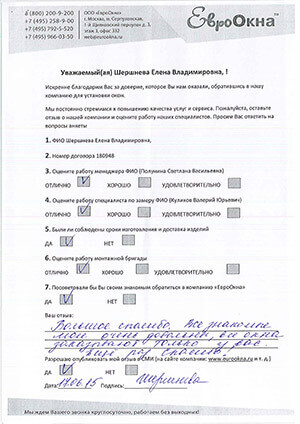 8 (800) 200-9-200
+7 (495) 258-9-00
+7 (495) 792-5-520
+7 (495) 966-03-50
ООО «ЕвроОкна»
г. Москва, м. Серпуховская,
1-й Щипковский переулок д. 3,
этаж 3, офис 302
web@eurookna.ru
ЕвроОкна™
Уважаемый(ая) Шершнева Елена Владимировна, !
Искренне благодарим Вас за доверие, которое Вы нам оказали, обратившись в нашу
компанию для установки окон.
Мы постоянно стремимся в повышению качества услуг и сервиса. Пожалуйста, оставьте
отзыв о нашей компании и оцените работу наших специалистов. Просим Вас ответить на
вопросы анкеты
1. ФИО Шершнева Елена Владимировна,
2. Номер договора 180948
3. Оцените работу менеджера ФИО (Полунина Светлана Васильевна)
ОТЛИЧНО V ХОРОШО УДОВЛЕТВОРИТЕЛЬНО
4. Оцените работу специалиста по замеру ФИО (Куликов Валерий Юрьевич)
ОТЛИЧНО V ХОРОШО УДОВЛЕТВОРИТЕЛЬНО
5. Были ли соблюдены сроки изготовления и доставка изделий
ДА V НЕТ
6. Оцените работу монтажной бригады
ОТЛИЧНО V ХОРОШО УДОВЛЕТВОРИТЕЛЬНО
7. Посоветовали бы Вы своим знакомым обратиться в компанию «ЕвроОкна»
ДА V НЕТ
Ваш отзыв:
Большое спасибо. Все знакомые
мои очень довольны все окна
заказывают только у вас.
Еще раз спасибо!
Разрешаю опубликовать мой отзыв в СМИ (на сайте компании: www.eurookna.ru и т. д.)
ДА V НЕТ
Дата: 17.06.15 Подпись: Шершнева
Мы ждем Вашего звонка круглосуточно, работаем без выходных!